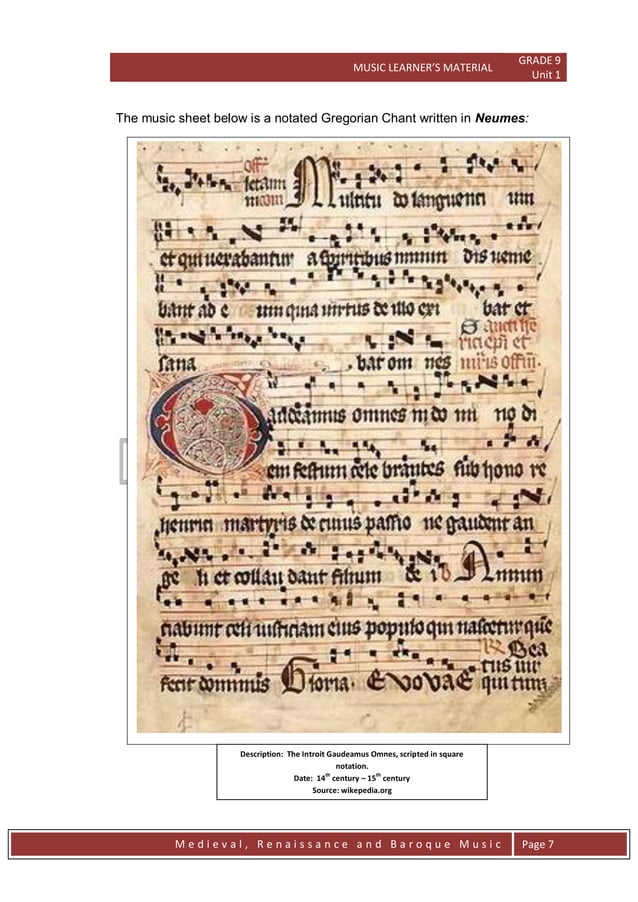 MUSIC LEARNER’S MATERIAL
GRADE 9
Unit 1
The music sheet below is a notated Gregorian Chant written in Neumes:
off
letam
Multitu do languenti um
et qui uexabantur a spiritibus dis ueme
bant ad e um quia uirtus de illo exi bat et
sana bat om nes
audeamus omnes in do mi no di
em festum cele brantes sub hono re
henrici martyris de cuius passio ne gaudent an
ge li et collau dant filium de i Annun
ciabunt celi iusticiam eius populo qui nascetur que
Bea
tus uir
fecit dominus Gloria. Evovae qui tim
Description: The Introit Gaudeamus Omnes, scripted in square
notation.
Date: 14th century – 15th century
Source: wikepedia.org
Medieval, Renaissance and Baroque Music
Page 7